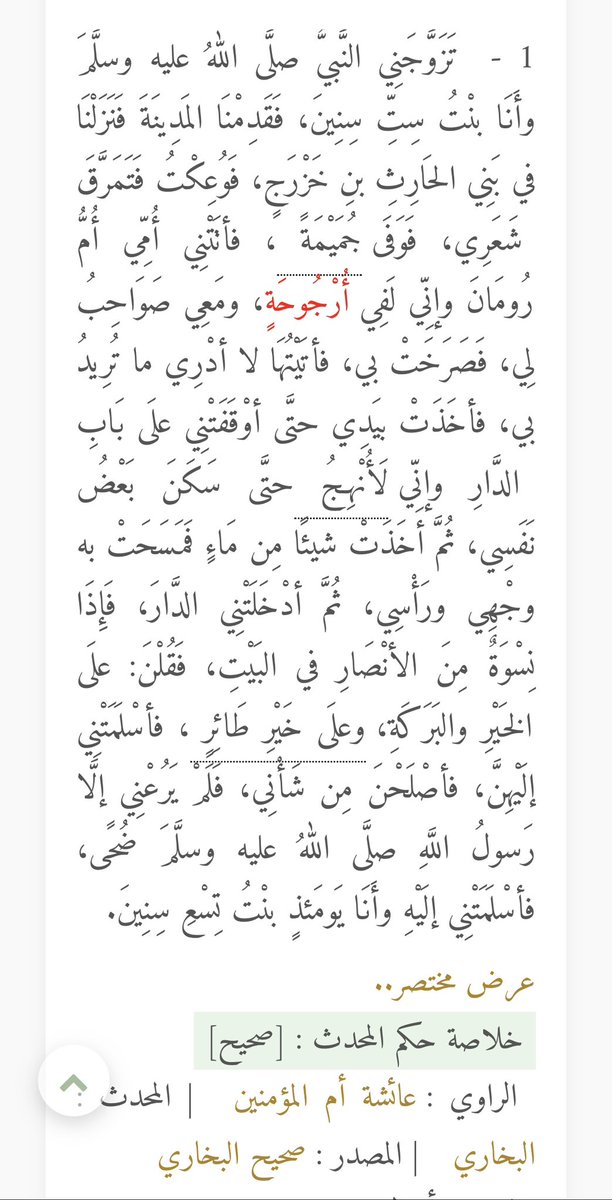 1 - تَزَوَّجَنِي النَّبيُّ صلَّى اللهُ عليه وسلَّمَ
وأَنَا بنْتُ سِتِّ سِنِينَ، فَقَدِمْنَا المَدِينَةَ فَنَزَلْنَا
في بَنِي الحَارِثِ بنِ خَزْرَجٍ، فَوُعِكْتُ فَتَمَرَّقَ
شَعَرِي، فَوَفَى جُمَيْمَةً ، فأتَتْنِي أُمِّي أُمُّ
رُومَانَ وإنِّي لَفِي أُرْجُوحَةٍ، ومَعِي صَوَاحِبُ
لِي، فَصَرَخَتْ بي، فأتَيْتُهَا لا أدْرِي ما تُرِيدُ
بي، فأخَذَتْ بيَدِي حتَّى أوْقَفَتْنِي علَى بَابِ
الدَّارِ وإنِّي لَأُنْهِجُ حتَّى سَكَنَ بَعْضُ
نَفَسِي، ثُمَّ أخَذَتْ شيئًا مِن مَاءٍ فَمَسَحَتْ به
وجْهِي ورَأْسِي، ثُمَّ أدْخَلَتْنِي الدَّارَ، فَإِذَا
نِسْوَةٌ مِنَ الأنْصَارِ في البَيْتِ، فَقُلْنَ: علَى
الخَيْرِ والبَرَكَةِ، وعلَى خَيْرِ طَائِرٍ ، فأسْلَمَتْنِي
إلَيْهِنَّ، فأصْلَحْنَ مِن شَأْنِي، فَلَمْ يَرُعْنِي إلَّا
رَسولُ اللَّهِ صلَّى اللهُ عليه وسلَّمَ ضُحًى،
فأسْلَمَتْنِي إلَيْهِ وأَنَا يَومَئذٍ بنْتُ تِسْعِ سِنِينَ.
عرض مختصر..
خلاصة حكم المحدث : [صحيح]
الراوي : عائشة أم المؤمنين | المحدث :
البخاري | المصدر : صحيح البخاري